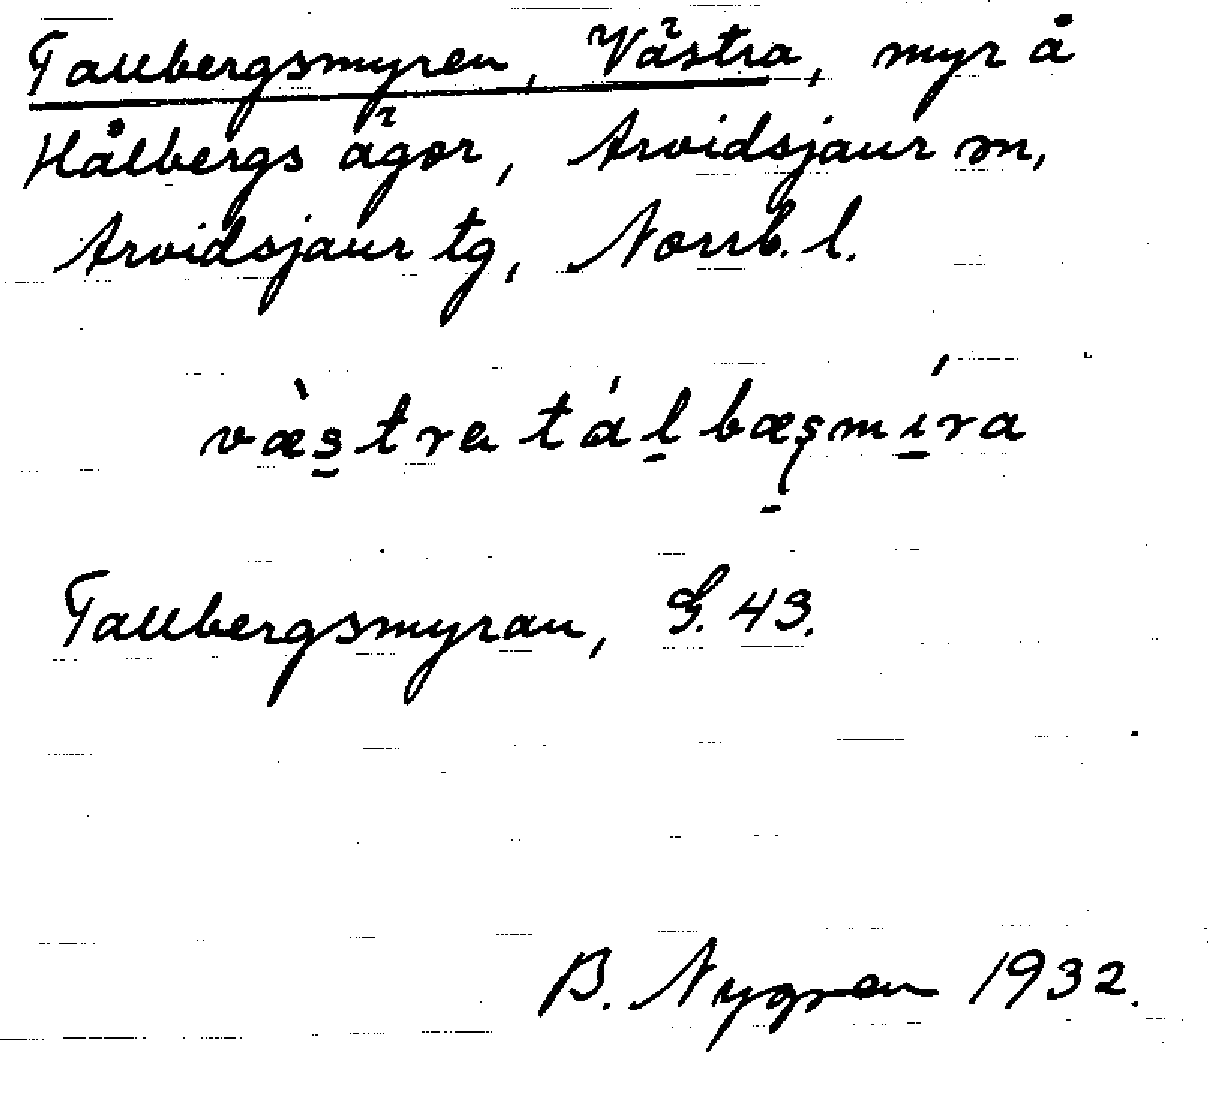 Tallbergsmyren, Västra, myr å
Hålbergs ägor, Arvidsjaur sn,
Arvidsjaur tg, Norrb. l.
væ̀stra tálbæʂmíra
Tallbergsmyran, G. 43.
B. Nygren 1932.